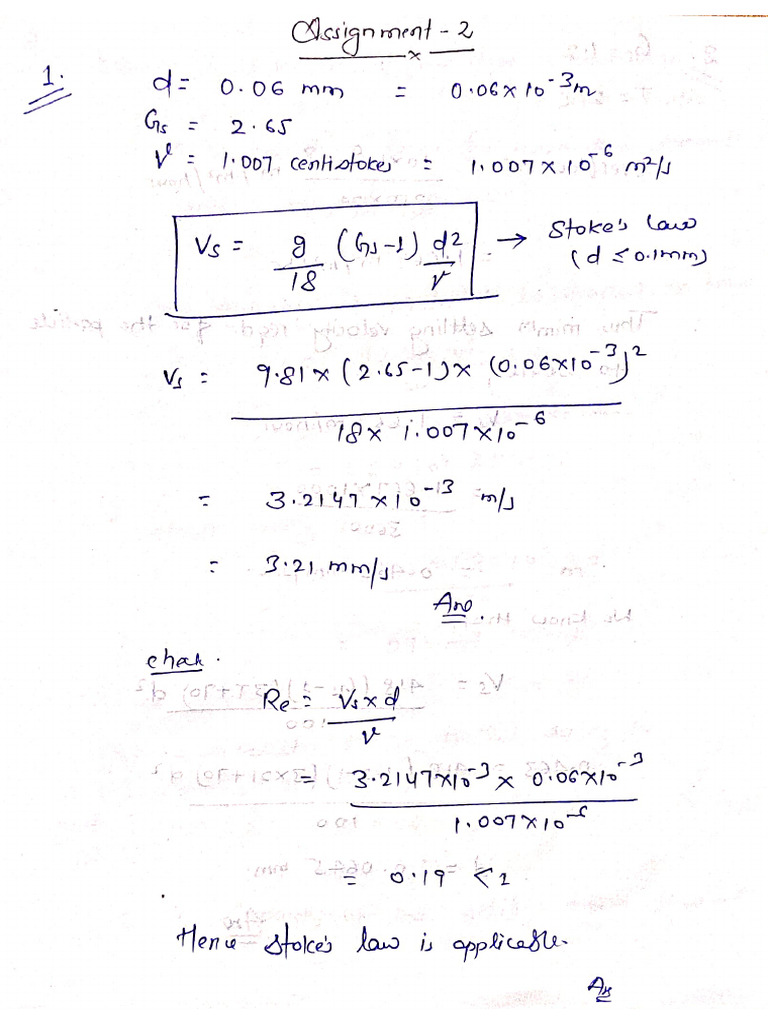 Assignment - 2
1. d = 0.06 mm = 0.06 × 10⁻³ m
Gs = 2.65
ν = 1.007 centistokes = 1.007 × 10⁻⁶ m²/s
Vs = g/18 (Gs-1) d²/ν → Stoke's law
(d ≤ 0.1mm)
Vs = 9.81 × (2.65-1) × (0.06×10⁻³)²
18 × 1.007 × 10⁻⁶
= 3.2147 × 10⁻¹³ m/s
= 3.21 mm/s
Ans.
chek.
Re = Vs × d / ν
= 3.2147×10⁻³ × 0.06×10⁻³
1.007 × 10⁻⁶
= 0.19 < 1
Hence Stoke's law is applicable.
As